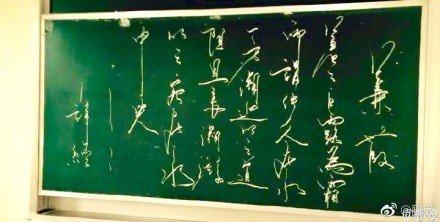 蒹葭
蒹葭苍苍白露為霜
所謂伊人在水
一方溯洄从之道
阻且長溯游
从之宛在水
中央
——
詩經